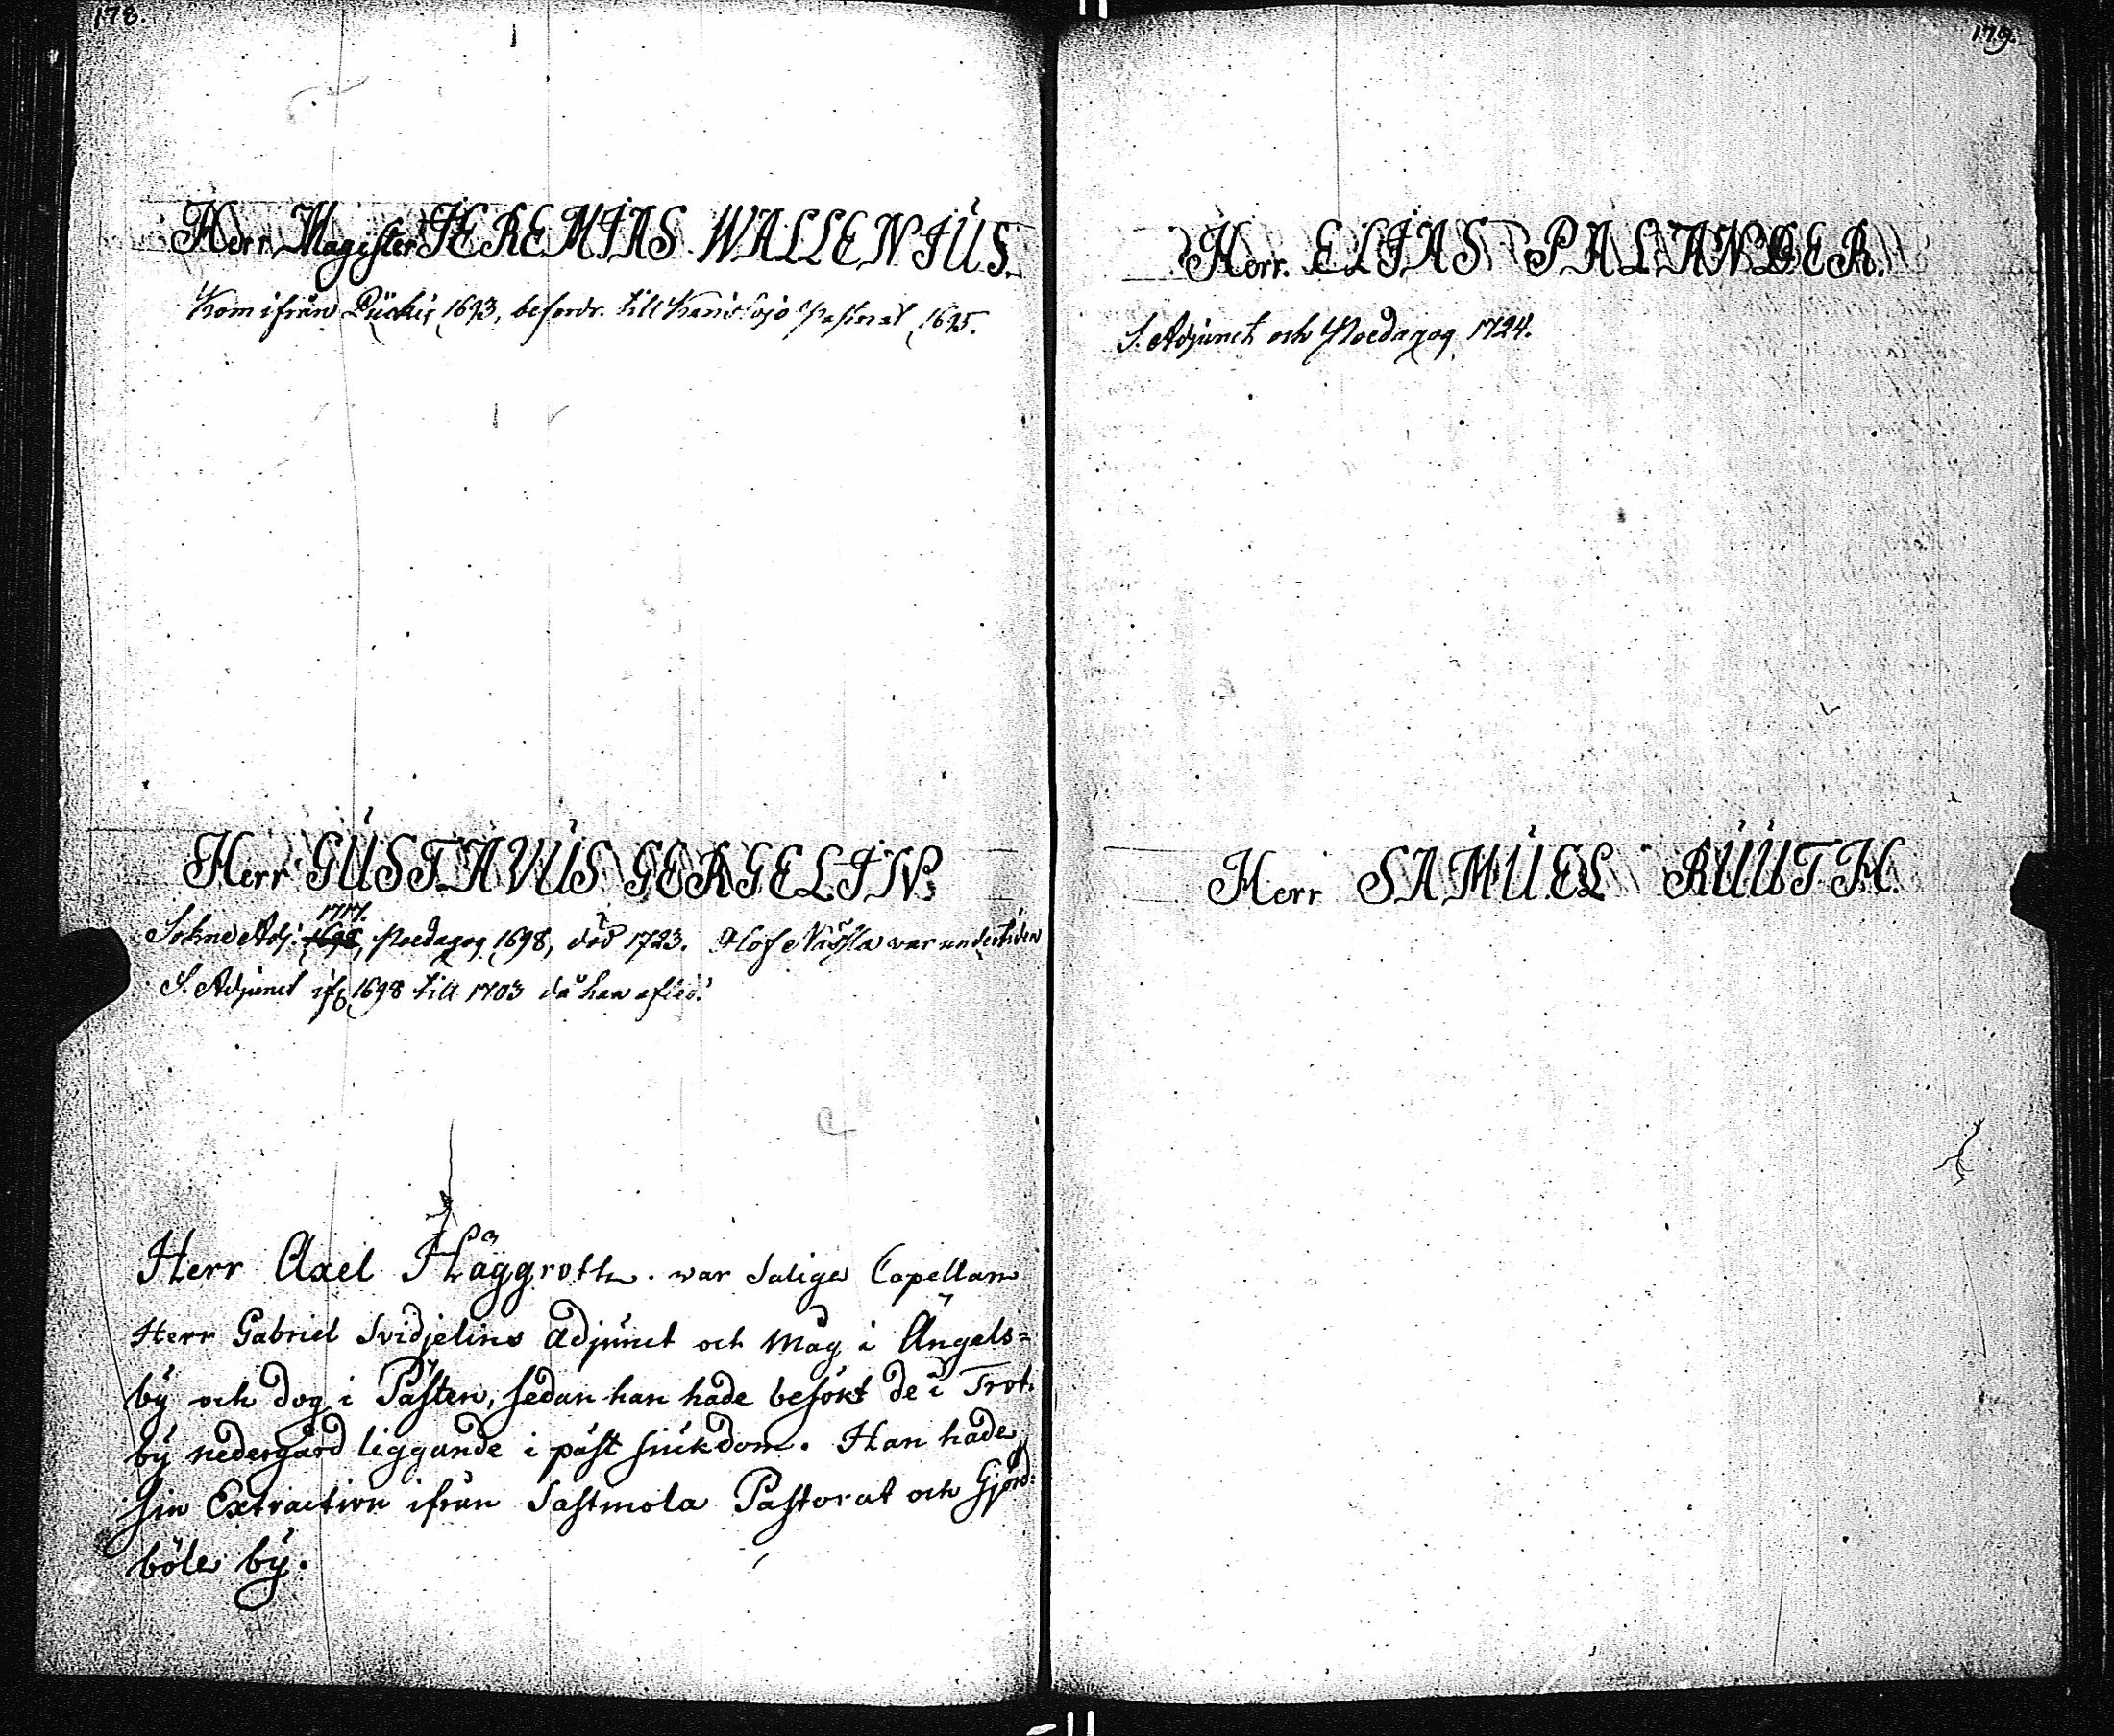 178.
Herr Magister JEREMIAS WALLENIUS.
Kom ifrån Pückis 1693, befordr. till Karislojo Pastorat 1695.
Herr GUSTAVUS GERGELIN.
1717.
Sokne Adj. 1698, Pædagog 1698, död 1723. Olof Näsla var undertiden
S. Adjunct ifr. 1698 till 1703 då han afled.
Herr Axel Häggroth. war Salige Capellan
Herr Gabriel Svidjelins adjunct och Måg i Ängels=
by och dog i Påsten, sedan han hade besökt de i Trot.
by nedergård liggande i påst siukdom. Han hade
sin Extraction ifrån Sastmola Pastorat och Gjörd:
böle by.
179.
Herr. ELIAS PALANDER.
S. Adjunct och Pædagog 1724.
Herr SAMUEL RUUTH.